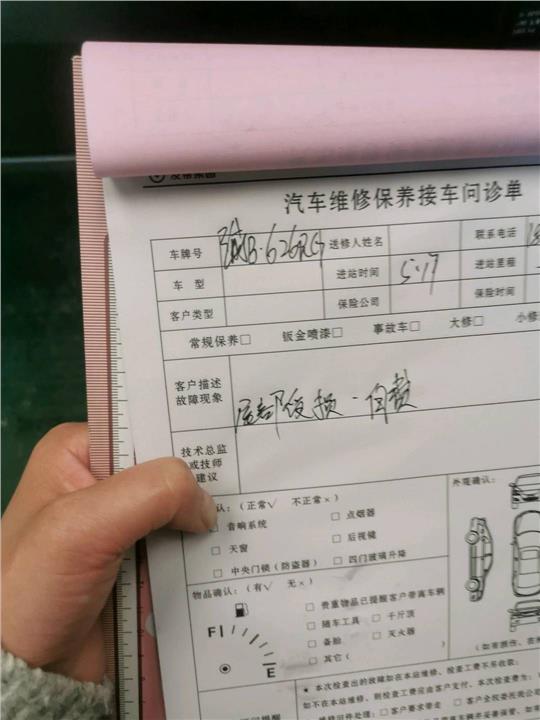 汽车维修保养接车问诊单
车牌号 送修人姓名 联系电话
车 型 进站时间 5.17 进站里程
客户类型 保险公司 保险时间
常规保养□ 钣金喷漆□ 事故车□ 大修□ 小修
客户描述
故障现象
底部复损·自费
技术总监
或技师
建议
认：（正常√ 不正常×） 外观确认：
音响系统 □ 点烟器
□ 天窗 □ 后视镜
□ 中央门锁（防盗器） □ 四门玻璃升降
物品确认：（有√ 无×）
□ 贵重物品已提醒客户带离车辆
F □ 随车工具 □ 千斤顶
□ 备胎 □ 灭火器
E □ 其它（
（如有损伤、
* 本次检查出的故障如在本站维修，检查工费不另收取；
如不在本站维修，则检查工费应由客户支付，本次检查费为：
□ 客户要求带走 □ 客户全权委托我公